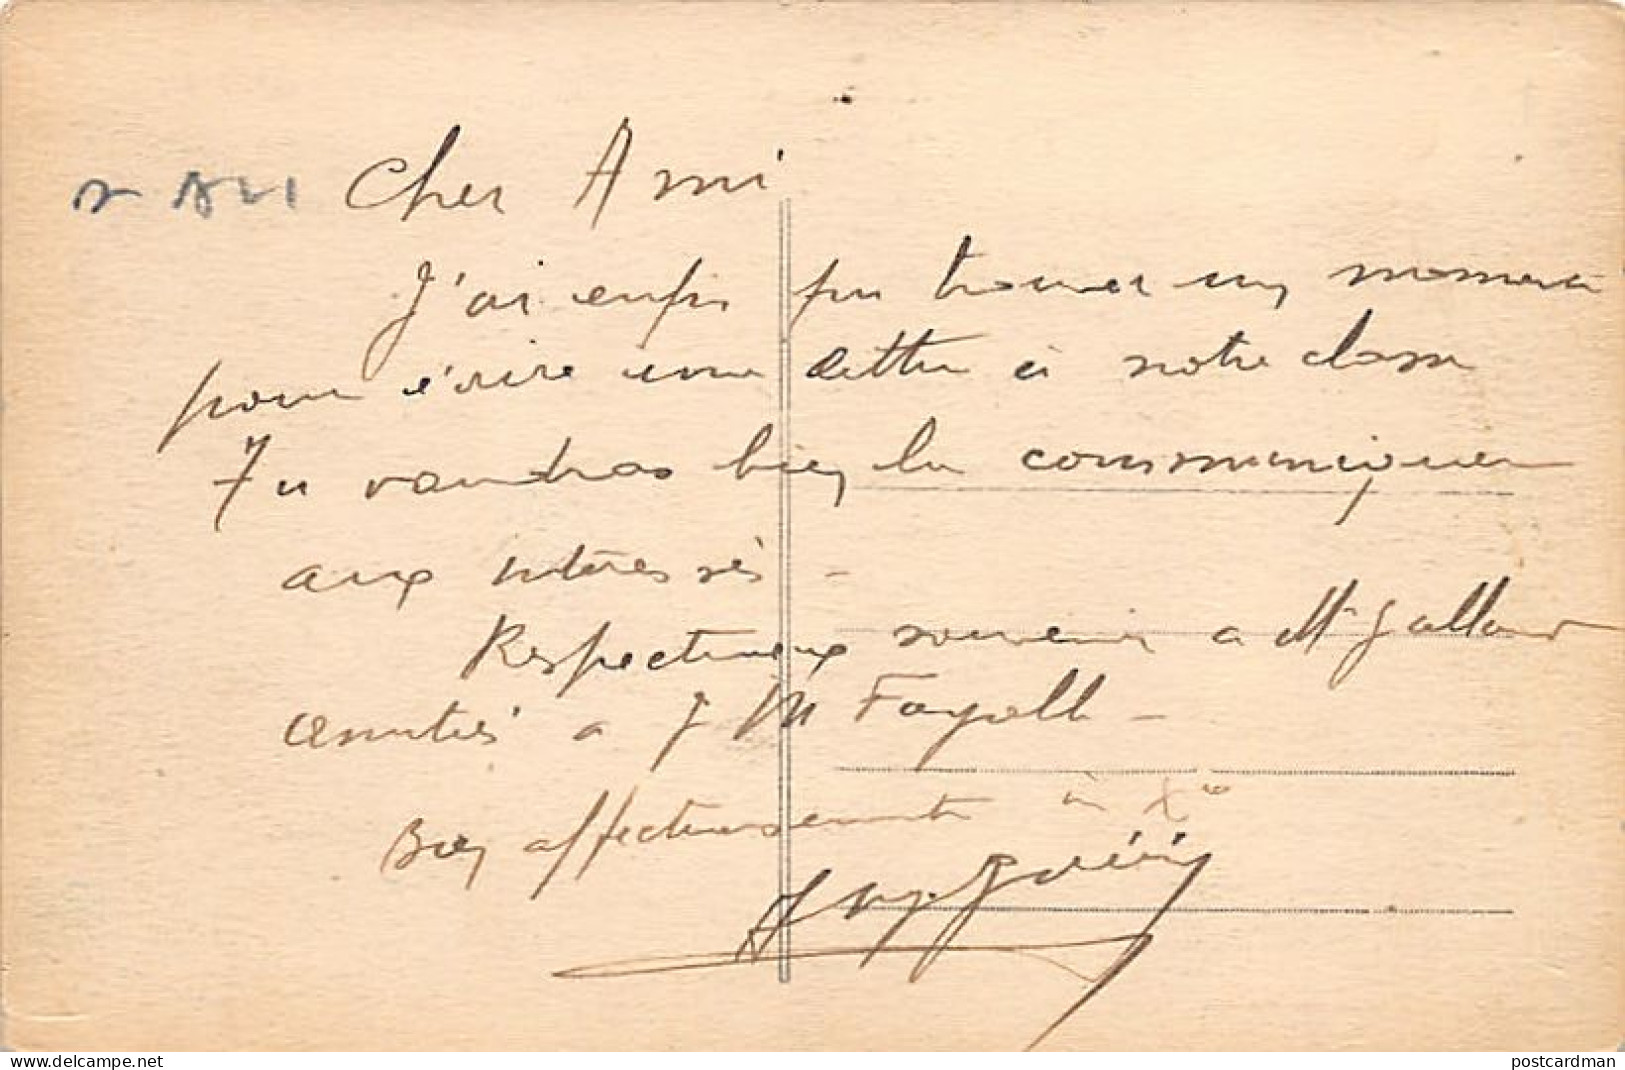 Cher Ami
J'ai enfin pu trouver un moment
pour écrire une lettre à notre classe
Tu voudras bien la communiquer
aux intéressés -
Respectueux souvenir a Mr Galland
amitiés a J M Fayolle -
Bien affectueusement à
delcampe.net
postcardman